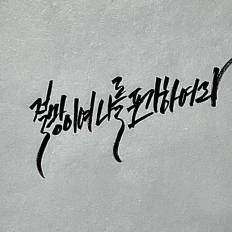 절망이여 나를 포기하여라